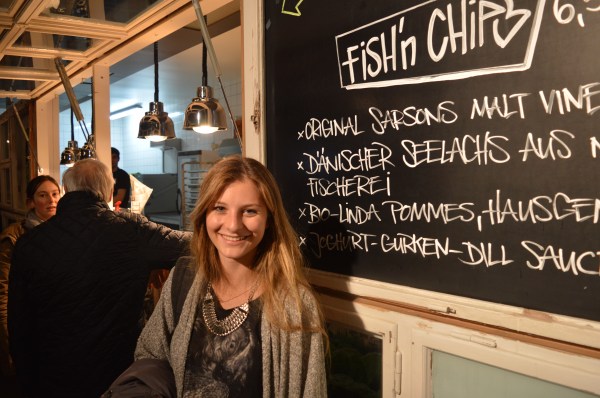 FISH'n CHIPS 6,5
×ORIGINAL SARSONS MALT VINE
×DÄNISCHER SEELACHS AUS N
FISCHEREI
×BIO-LINDA POMMES, HAUSGE
×JOGHURT-GURKEN-DILL SAUC